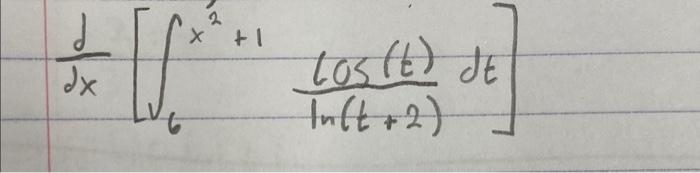 d/dx [∫₆^(x²+1) cos(t)/ln(t+2) dt]